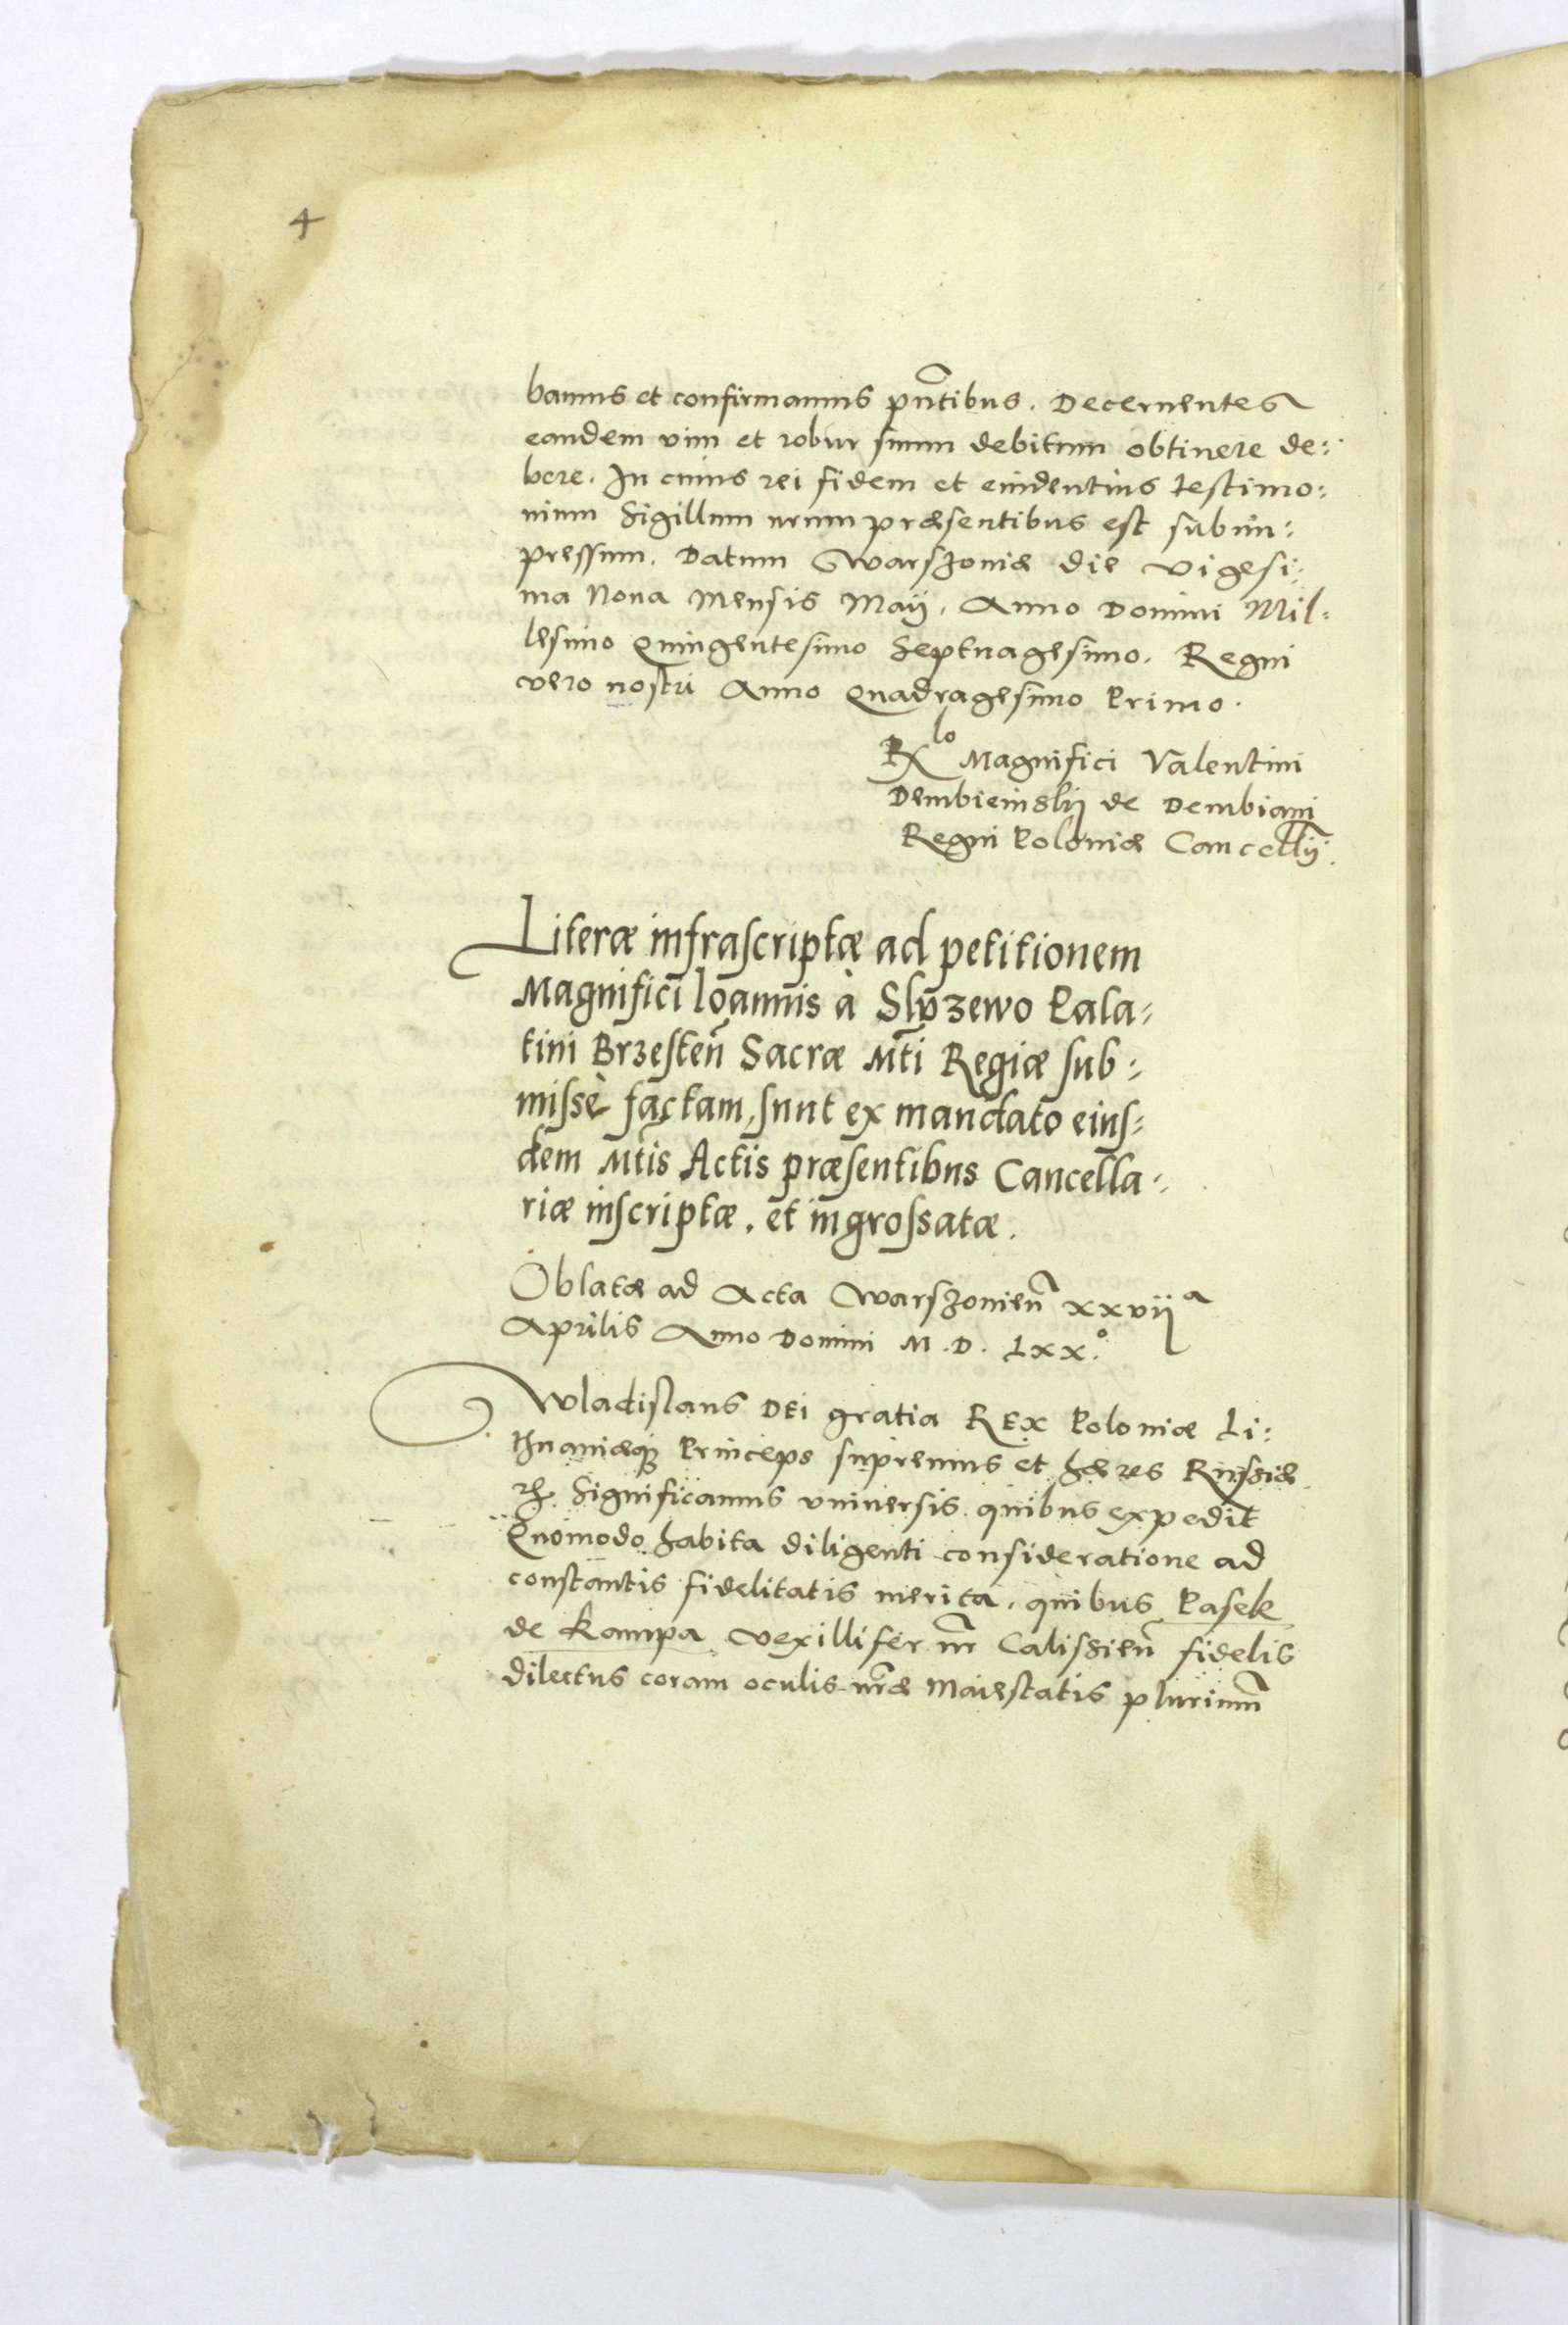 4
bamus et confirmamus pñtibus. Decernentes
eandem vim et robur suum debitum obtinere de:
bere. In cuius rei fidem et euidentius testimo:
nium Sigillum nrum præsentibus est subim:
pressum. Datum Warszouiæ die vigesi:
ma Nona Mensis Maij. Anno Domini Mil:
lesimo Quingentesimo Septuagesimo. Regni
vero nostri Anno Quadragesimo Primo.
Rlo Magnifici Valentini
Dembieinskij de Dembiani
Regni Poloniæ Cancellij.
Literæ infrascriptæ ad petitionem
Magnifici Ioannis à Sluzewo Pala:
tini Brzesteñ Sacræ Mti Regiæ sub:
missè factam, sunt ex mandato eius:
dem Mtis Actis præsentibus Cancella:
riæ inscriptæ. et ingrossatæ.
Oblatæ ad Acta Warszouieñ xxvij a
Aprilis Anno Domini M.D. Lxx.o
Wladislaus Dei gratia Rex Poloniæ Li:
thuaniæq Princeps supremus et hæres Russiæ
Significamus vniuersis quibus expedit
Quomodo habita diligenti consideratione ad
constantis fidelitatis merita. quibus Pasek
de Kampa vexillifer nr Calissieñ fidelis
dilectus coram oculis nræ Maiestatis plurimũ